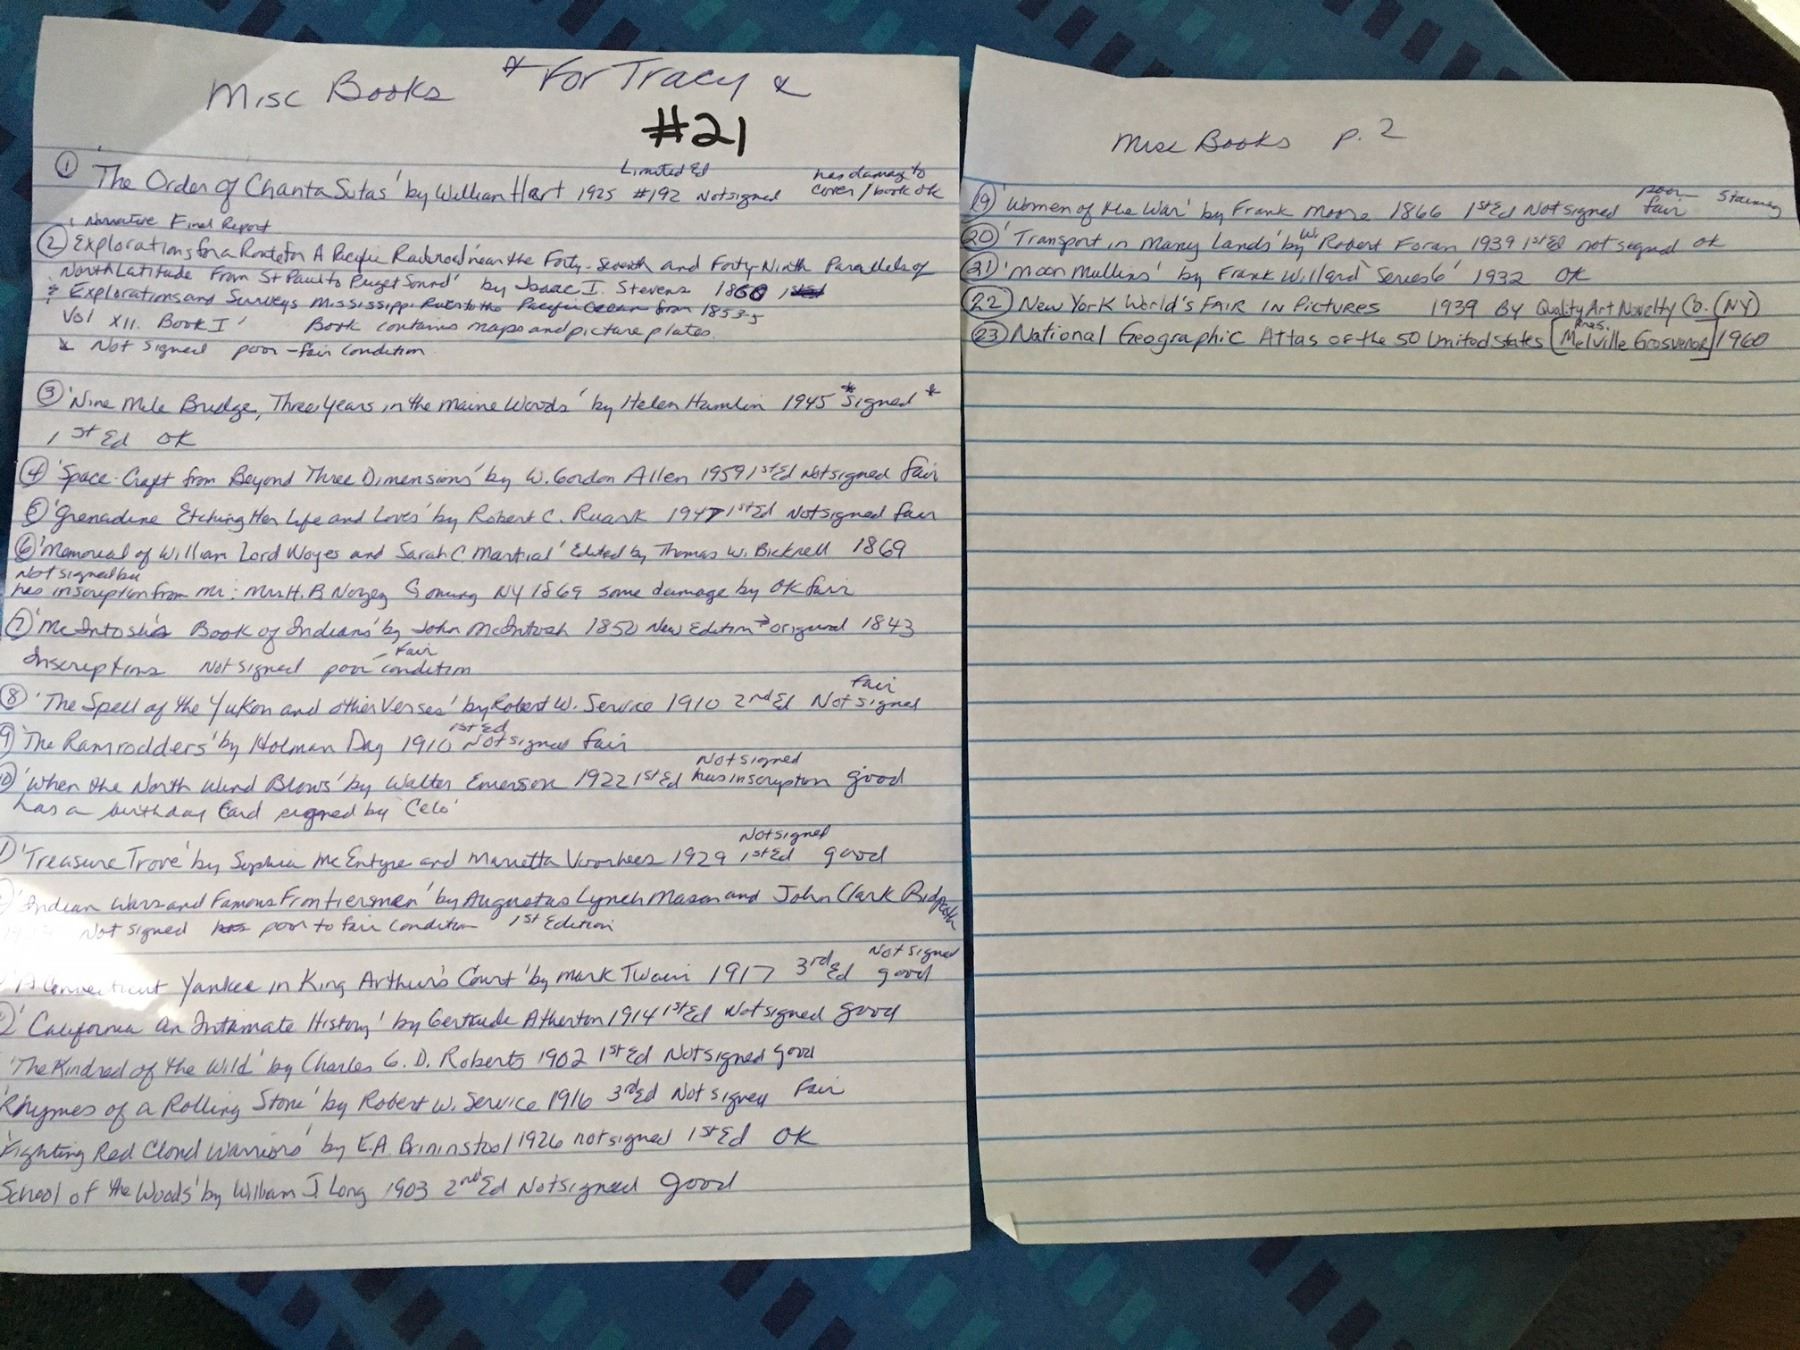 Misc Books * For Tracy *
#21
① 'The Order of Chanta Sutas' by William Hart 1925 Limited Ed #192 Not signed has damage to cover / book ok
Narrative Final Report
② Explorations for a Route for A Pacific Railroad near the Forty-Seventh and Forty-Ninth Parallels of
North Latitude From St Paul to Puget Sound' by Isaac I. Stevens 1860 1st Ed
& Explorations and Surveys Mississippi River to the Pacific Ocean from 1853-5
Vol XII. Book I' Book contains maps and picture plates.
* Not signed poor-fair condition
③ 'Nine Mile Bridge, Three Years in the Maine Woods' by Helen Hamlin 1945 *signed*
1st Ed OK
④ 'Space-Craft from Beyond Three Dimensions' by W. Gordon Allen 1959 1st Ed Not signed fair
⑤ 'Grenadine Etching Her Life and Loves' by Robert C. Ruark 1947 1st Ed Not signed fair
⑥ 'Memorial of William Lord Noyes and Sarah C Martial' Edited by Thomas W. Bicknell 1869
Not signed but
has inscription from Mr: Mrs H. B Noyes NY 1869 some damage by OK fair
⑦ 'McIntosh's Book of Indians' by John McIntosh 1850 New Edition → original 1843
Inscriptions Not signed poor-fair condition
⑧ 'The Spell of the Yukon and other Verses' by Robert W. Service 1910 2nd Ed Not signed Fair
9 'The Ramrodders' by Holman Day 1910 1st Ed Not signed fair
10 'When the North Wind Blows' by Walter Emerson 1922 1st Ed Not signed has inscription good
has a birthday card signed by 'Celo'
'Treasure Trove' by Sophia McEntyre and Marietta Voorhees 1929 Not signed 1st Ed good
'Indian Wars and Famous Frontiersmen' by Augustus Lynch Mason and John Clark Ridpath
Not signed poor to fair condition 1st Edition
'A Connecticut Yankee in King Arthur's Court' by Mark Twain 1917 3rd Ed Not signed good
'California An Intimate History' by Gertrude Atherton 1914 1st Ed Not signed good
'The Kindred of the Wild' by Charles G. D. Roberts 1902 1st Ed Not signed good
'Rhymes of a Rolling Stone' by Robert W. Service 1916 3rd Ed Not signed Fair
'Fighting Red Cloud Warriors' by E.A. Brininstool 1926 not signed 1st Ed OK
School of the Woods' by William J. Long 1903 2nd Ed Not signed good
Misc Books p. 2
⑲ 'Women of the War' by Frank Moore 1866 1st Ed Not signed poor fair Staining
⑳ 'Transport in Many Lands' by W. Robert Foran 1939 1st Ed not signed ok
㉑ 'Moon Mullins' by Frank Willard 'Series 6' 1932 OK
㉒ New York World's Fair In Pictures 1939 By Quality Art Novelty Co. (NY)
㉓ National Geographic Atlas of the 50 United States [Pres. Melville Grosvenor] 1960